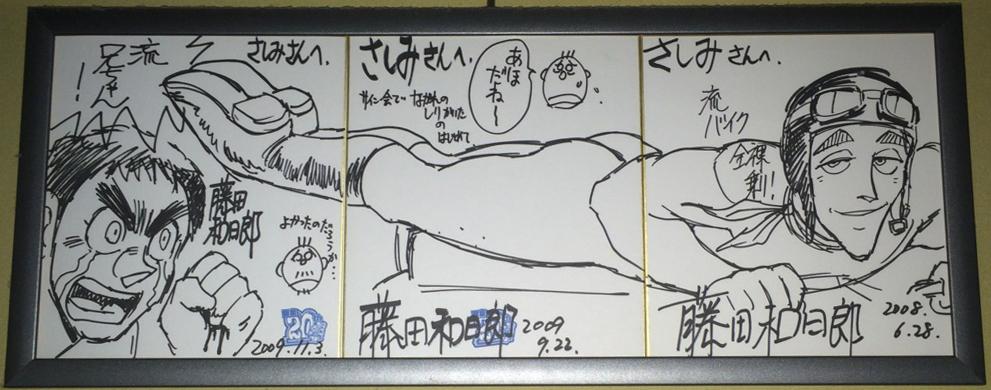 さしみさんへ.
流
兄ちゃん
ー!
藤田
和日郎
よかったのだ
ろうか…
20
2009.11.3.
さしみさんへ.
あほ
だね〜
サイン会で
ながれの
しりかいた
の
はじめて.
藤田和日郎
2009
9.22.
さしみさんへ.
流
バイク
全裸
乗り!
藤田和日郎
2008.
6.28.